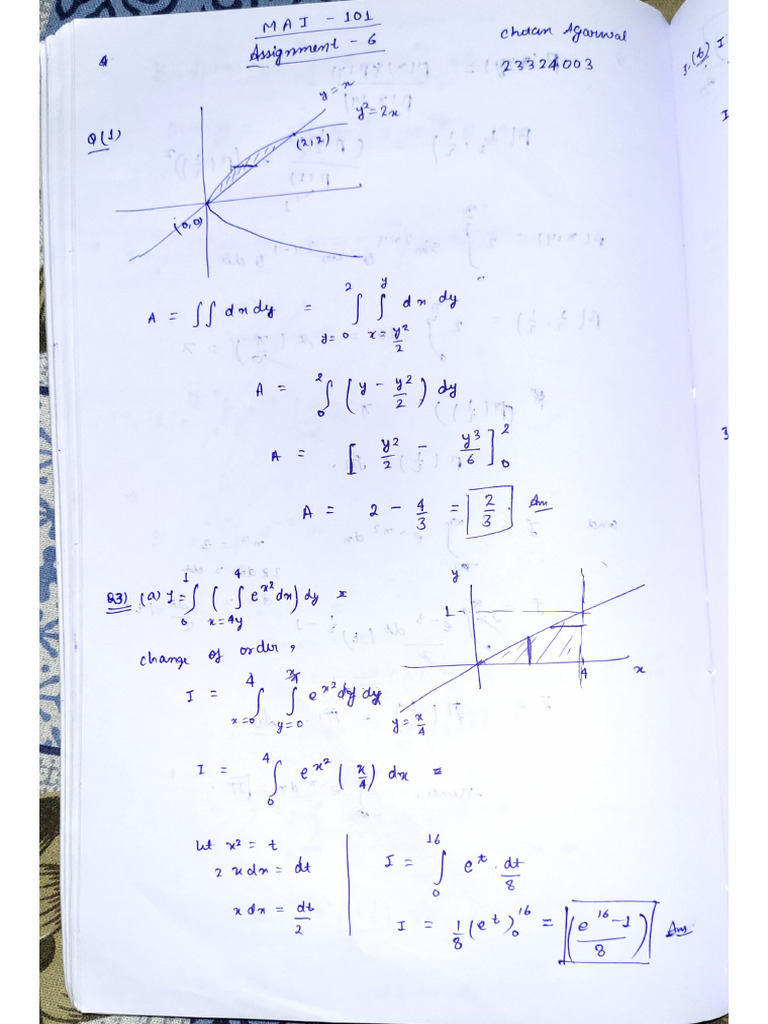 MAI - 101
Assignment - 6
Chetan Agarwal
23324003
Q(1)
y=x
y²=2x
(2,2)
(0,0)
A = ∫∫ dx dy = ∫_{y=0}^{2} ∫_{x=y²/2}^{y} dx dy
A = ∫_{0}^{2} (y - y²/2) dy
A = [y²/2 - y³/6]_{0}^{2}
A = 2 - 4/3 = 2/3. Ans
Q3) (a) I = ∫_{0}^{1} (∫_{x=4y}^{4} e^{x²} dx) dy =
y
1
4
x
y = x/4
Change of order,
I = ∫_{x=0}^{4} ∫_{y=0}^{x/4} e^{x²} dy dy
I = ∫_{0}^{4} e^{x²} (x/4) dx =
let x² = t
2 x dx = dt
x dx = dt/2
I = ∫_{0}^{16} e^t · dt/8
I = 1/8 (e^t)_{0}^{16} = (e^{16} - 1 / 8) Ans
3. (b) I
I
3